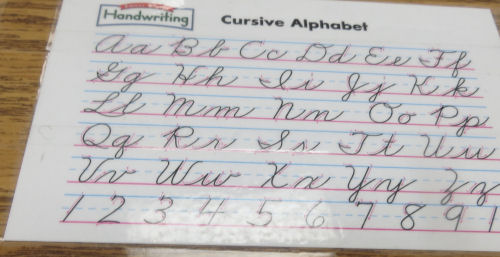 Handwriting
Cursive Alphabet
Aa Bb Cc Dd Ee Ff
Gg Hh Ii Jj Kk
Ll Mm Nn Oo Pp
Qq Rr Ss Tt Uu
Vv Ww Xx Yy Zz
1 2 3 4 5 6 7 8 9 1